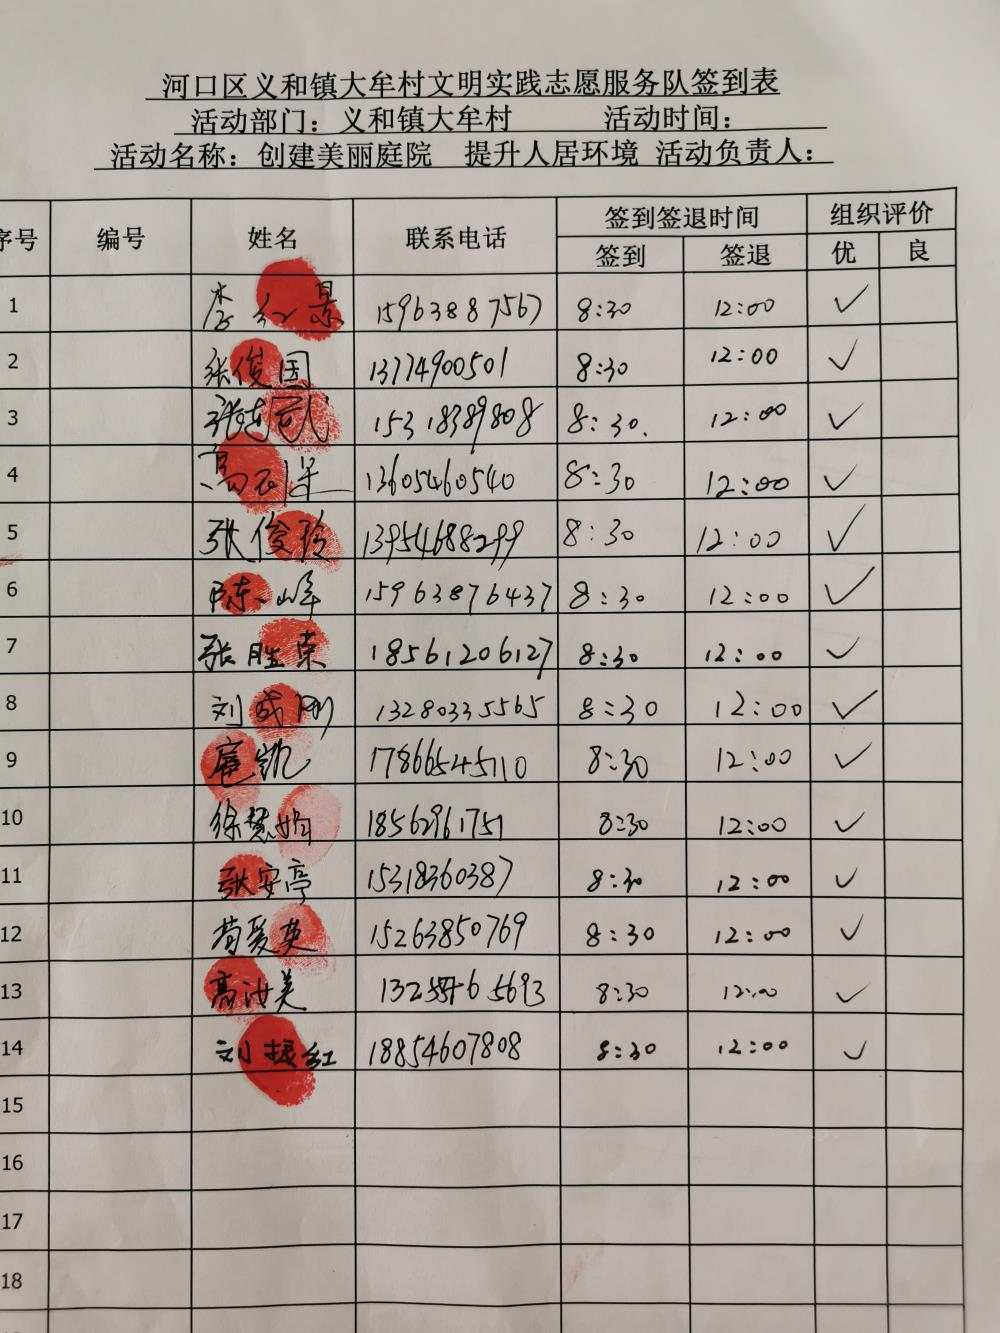 河口区义和镇大牟村文明实践志愿服务队签到表
活动部门：义和镇大牟村 活动时间：
活动名称：创建美丽庭院 提升人居环境 活动负责人：
序号 编号 姓名 联系电话 签到签退时间 组织评价
签到 签退 优 良
1 李红景 15963887567 8:30 12:00 ✓
2 张俊国 13774900501 8:30 12:00 ✓
3 15318389808 8:30. 12:00 ✓
4 13605460540 8:30 12:00 ✓
5 张俊玲 13954688299 8:30 12:00 ✓
6 陈小峰 15963876437 8:30 12:00 ✓
7 张胜荣 18561206127 8:30 12:00 ✓
8 刘成刚 13280335565 8:30 12:00 ✓
9 扈凯 17866545110 8:30 12:00 ✓
10 徐慧娟 18562961751 8:30 12:00 ✓
11 张安亭 15318360387 8:30 12:00 ✓
12 苟爱英 15263850769 8:30 12:00 ✓
13 高汝美 8:30 12:00 ✓
14 刘振红 18854607808 8:30 12:00 ✓
15
16
17
18